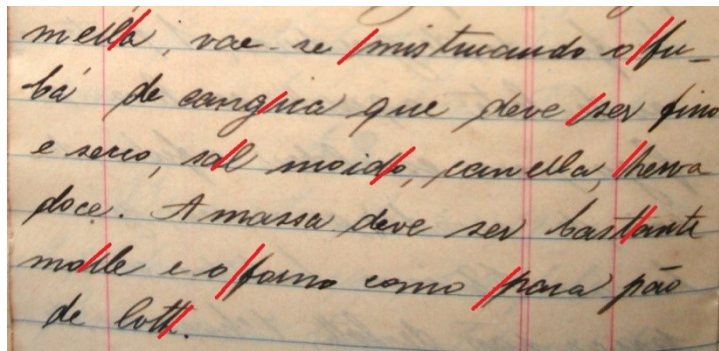 mella, vae-se misturando o fu-
bá de cangica que deve ser fino
e secco, sal moido, canella, herva
doce. A massa deve ser bastante
molle e o forno como para pão
de loth.